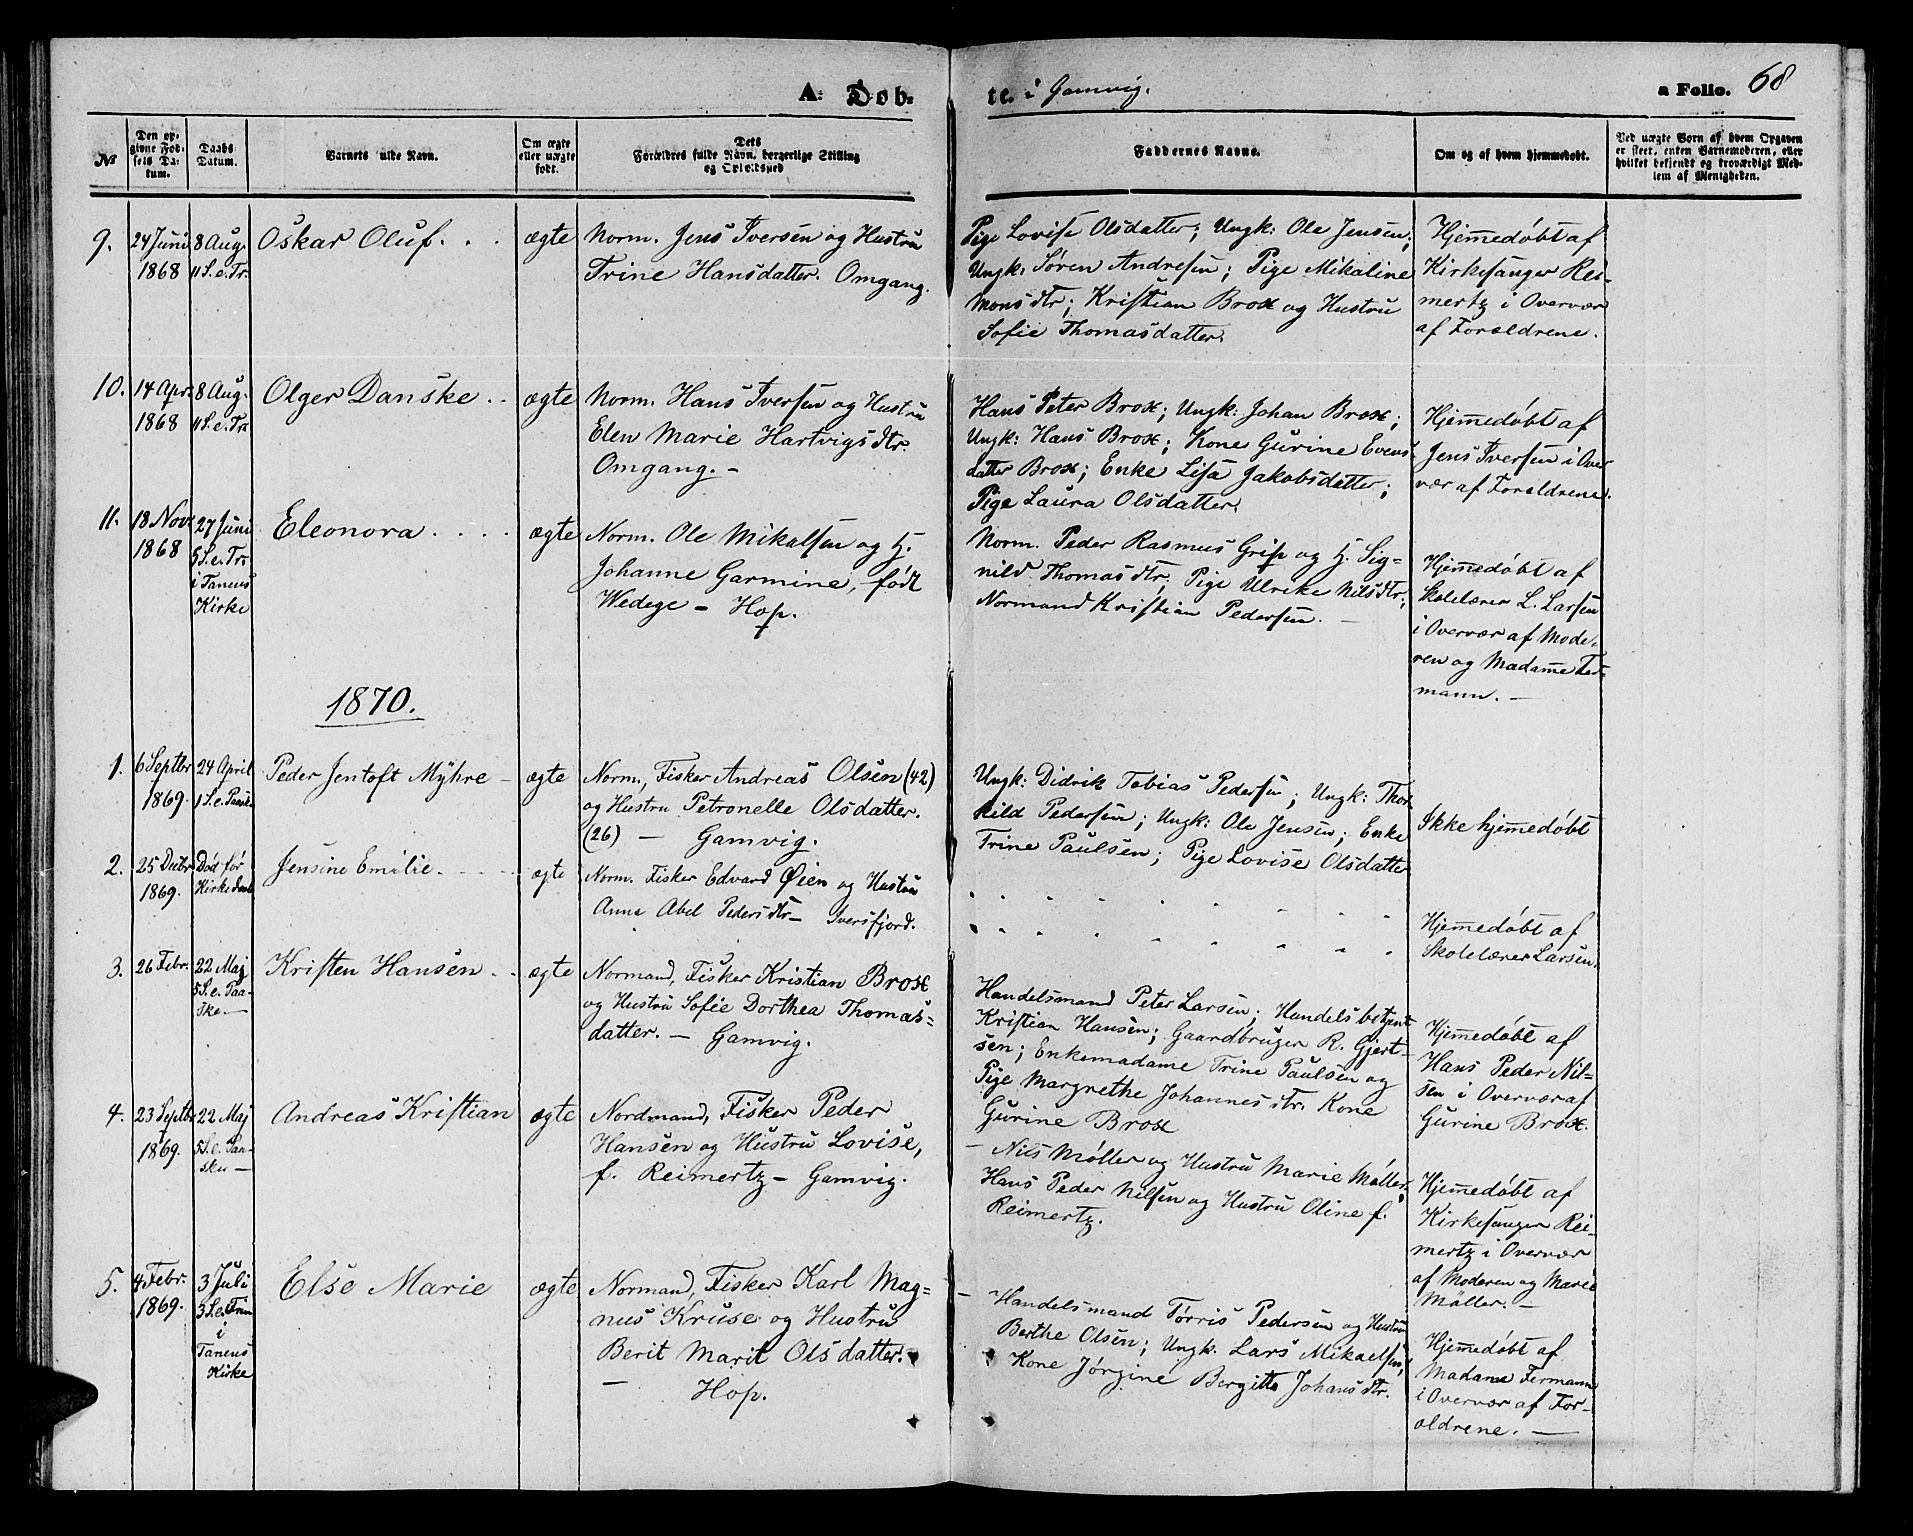 A. Døb-
te. i Gamvig.
a Folio. 68
No
Den op-
givne Fød-
sels Da-
tum.
Daabs
Datum.
Barnets fulde Navn.
Om ægte
eller uægte
født.
Dets
Forældres fulde Navn, borgerlige Stilling
og Opholdssted
Faddernes Navne.
Om og af hvem hjemmedøbt.
Ved uægte Børn af hvem Opgaven
er skeet, enten Barnemoderen, eller
hvilket bekjendt og troværdigt Med-
lem af Menigheden.
9.
24 Juni
1868
8 Aug.
11 S. e. Tr.
Oskar Oluf. . .
ægte
Norm. Jens Iversen og Hustru
Trine Hansdatter. Omgang.
Pige Lovise Olsdatter; Ungk: Ole Jensen;
Ungk: Søren Andresen; Pige Mikaline
Monsdtr; Kristian Brox og Hustru
Sofie Thomasdatter.
Hjemmedøbt af
Kirkesanger Rei-
mertz i Overvær
af Forældrene.
10.
14 Apr.
1868
8 Aug.
11 S. e. Tr.
Olger Danske . .
ægte
Norm. Hans Iversen og Hustru
Elen Marie Hartvigsdtr.
Omgang. -
Hans Peter Brox; Ungk: Johan Brox;
Ungk: Hans Brox; Kone Gurine Evens
datter Brox; Enke Lisa Jakobsdatter;
Pige Laura Olsdatter.
Hjemmedøbt af
Jens Iversen i Over
vær af Forældrene.
11.
18 Nov.
1868
27 Juni
5 S. e. Tr.
i Tanens
Kirke
Eleonora . . . .
ægte
Norm. Ole Mikalsen og H.
Johanne Garmine, født
Wedege - Hop.
Norm. Peder Rasmus Grip og H. Sig-
nild Thomasdtr. Pige Ulrike Nilsdtr;
Normand Kristian Pedersen. -
Hjemmedøbt af
Skolelærer L. Larsen
i Overvær af Mode-
ren og Madame Fer-
mann. -
1870.
1.
6 Septbr
1869.
24 April
1 S. e. Paask
Peder Jentoft Myhre -
ægte
Norm., Fisker Andreas Olsen (42)
og Hustru Petronelle Olsdatter.
(26) - Gamvig.
Ungk: Didrik Tobias Pedersen; Ungk: Thor-
kild Pedersen; Ungk: Ole Jensen; Enke
Trine Paulsen; Pige Lovise Olsdatter
Ikke hjemmedøbt
2.
25 Decbr
1869.
Død før
Kirkedaab
Jensine Emilie. - - - -
ægte
Norm. Fisker Edvard Øien og Hustru
Anna Abel Pedersdtr - Iversfjord.
Hjemmedøbt af
Skolelærer Larsen.
3.
26 Febr.
22 Maj
5 S. e. Paa-
ske. -
Kristen Hansen . .
ægte
Normand, Fisker Kristian Brox
og Hustru Sofie Dorthea Thomas-
datter. - Gamvig.
Handelsmand Peter Larsen; Handelsbetjent
Kristian Hansen; Gaardbruger R. Gjert-
sen; Enkemadame Trine Paulsen og
Pige Margrethe Johannesdtr. Kone
Gurine Brox
Hjemmedøbt af
Hans Peder Nil-
sen i Overvær af
Gurine Brox.
4.
23 Septbr
1869.
22 Maj
5 S. e. Paa-
ske -
Andreas Kristian
ægte
Nordmand, Fisker Peder
Hansen og Hustru Lovise,
f. Reimertz - Gamvig.
- Nils Møller og Hustru Marie Møller;
Hans Peder Nilsen og Hustru Oline f.
Reimertz.
Hjemmedøbt af
Kirkesanger Rei-
mertz i Overvær
af Moderen og Marie
Møller. -
5.
4 Febr.
1869.
3 Juli
3 S. e. Trin
i
Tanens
Kirke
Else Marie
ægte
Normand, Fisker Karl Mag-
nus Kruse og Hustru
Berit Marit Olsdatter.
- Hop.
- Handelsmand Tørris Pedersen og Hustru
Berthe Olsen; Ungk: Lars Mikaelsen;
Kone Jørgine Bergitte Johansdtr.
Hjemmedøbt af
Madame Fermann
i Overvær af For-
ældrene. -